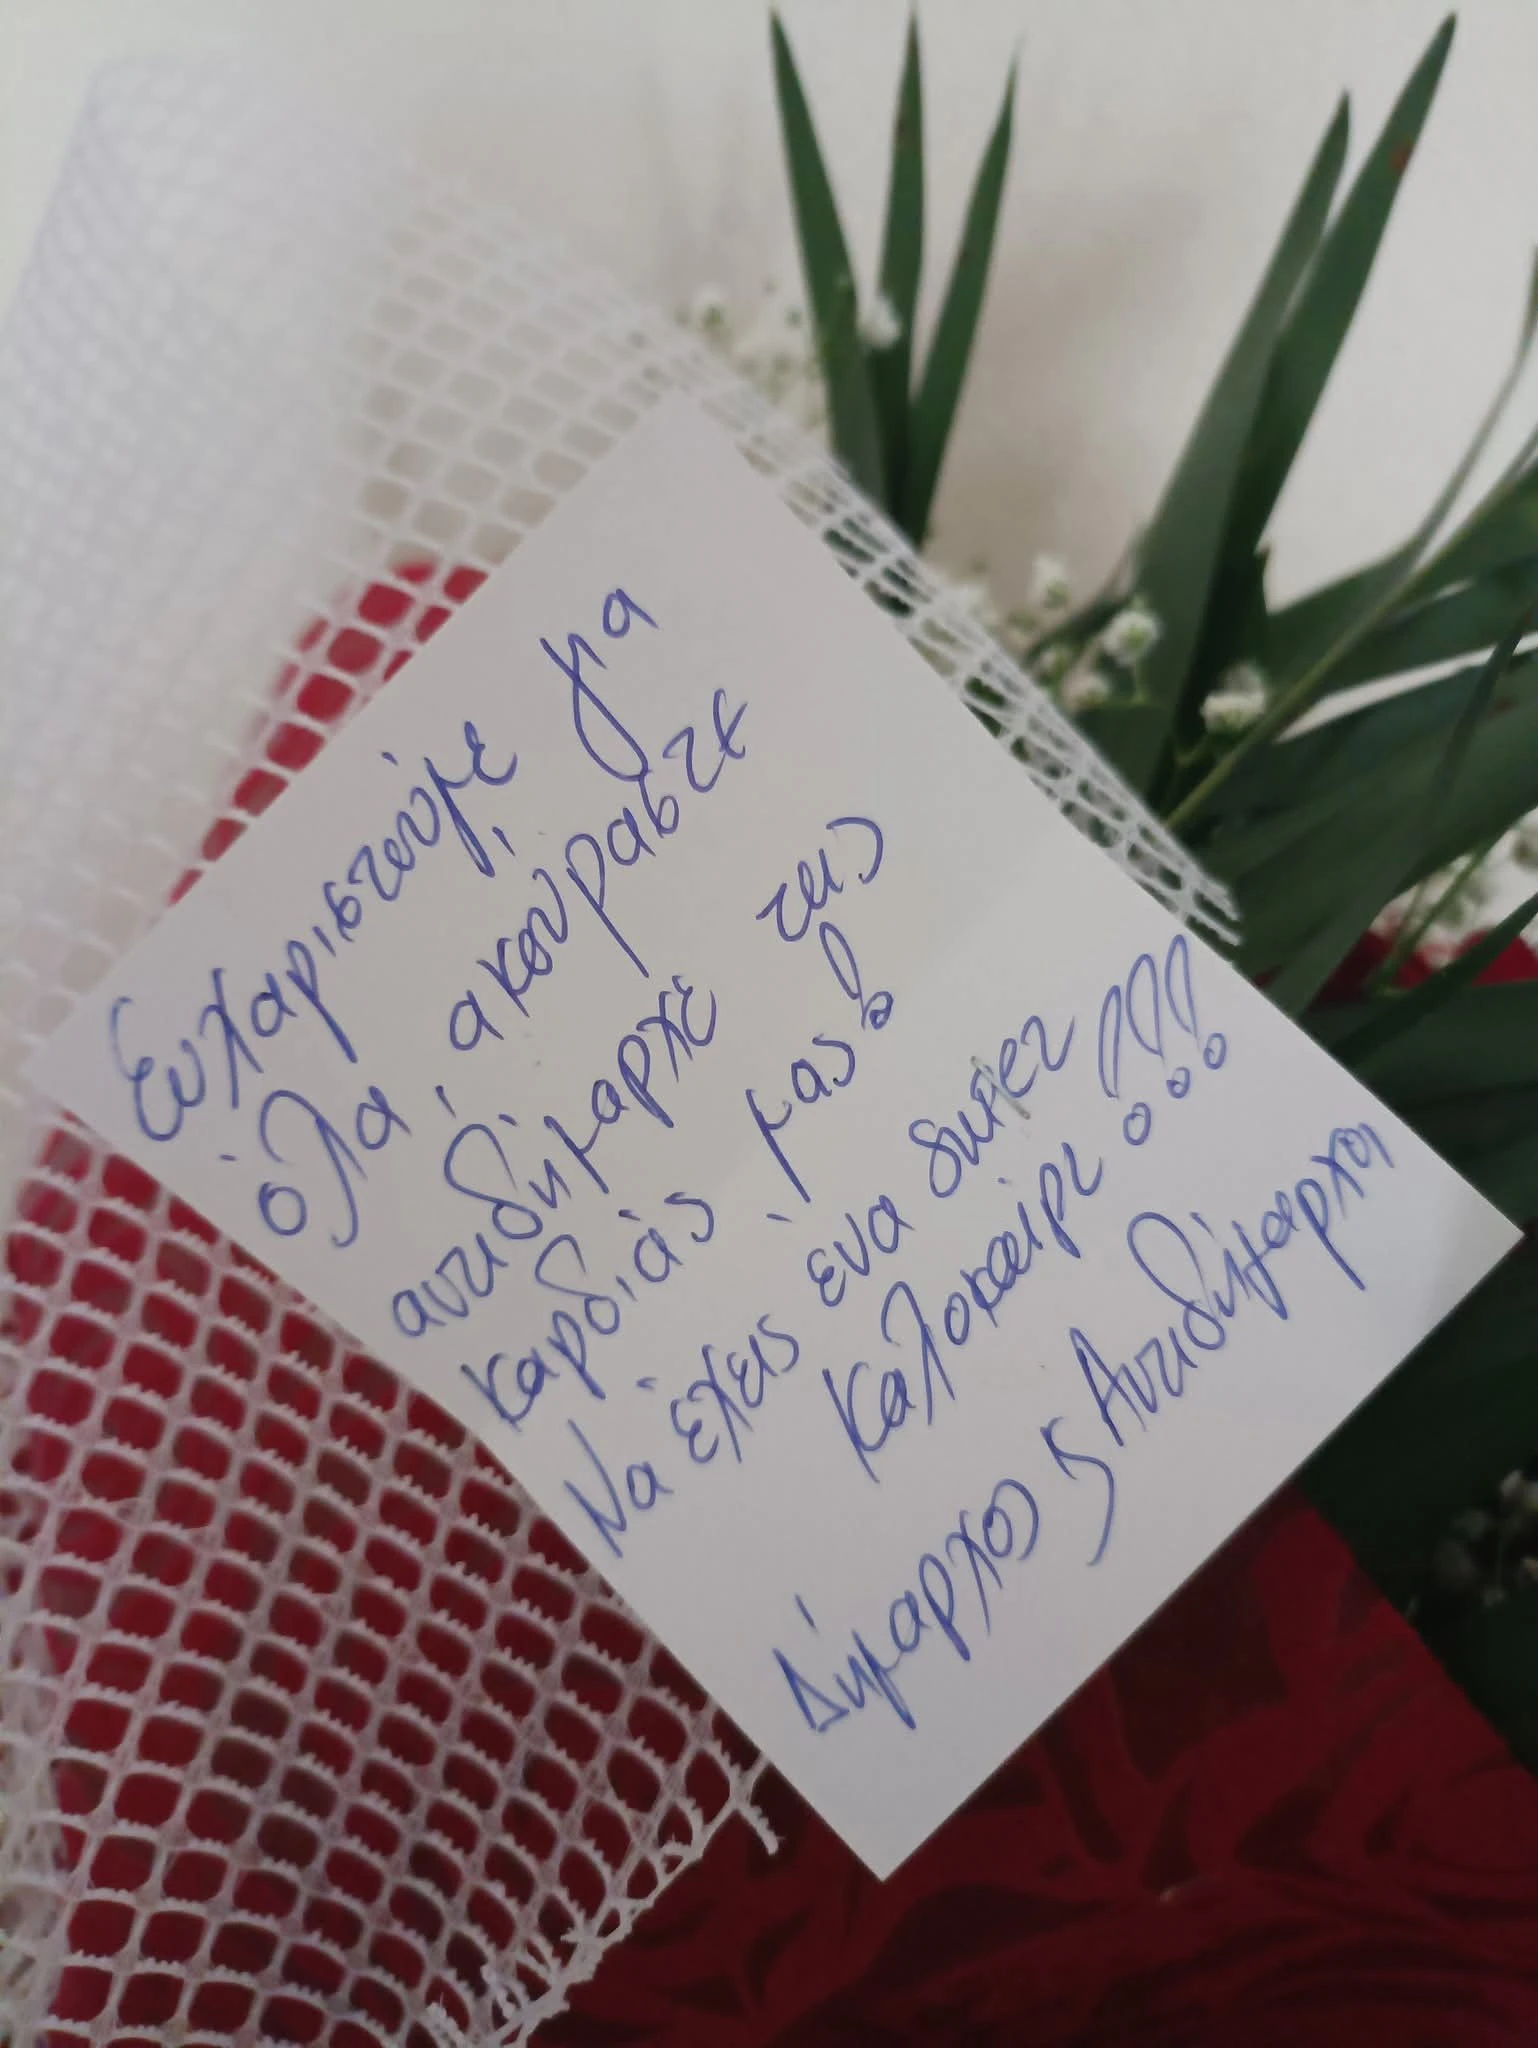 Ευχαριστούμε για
όλα, ακούραστε
αντιδήμαρχε της
καρδιάς μας!
Να έχεις ένα
καλοκαίρι!!!
Δήμαρχος & Αντιδήμαρχοι